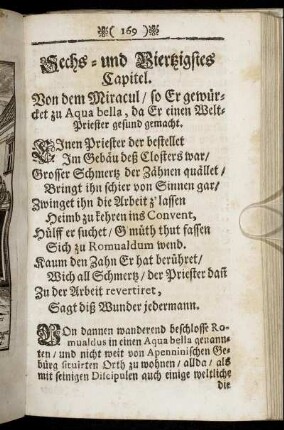 ( 169 )
Sechs- und Viertzigstes
Capitel.
Von dem Miracul / so Er gewür-
cket zu Aqua bella, da Er einen Welt-
Priester gesund gemacht.
EInen Priester der bestellet
Im Gebäu deß Closters war /
Grosser Schmertz der Zähnen quället /
Bringt ihn schier von Sinnen gar /
Zwinget ihn die Arbeit z' lassen
Heimb zu kehren ins Convent,
Hülff er suchet / G'müth thut fassen
Sich zu Romualdum wend.
Kaum den Zahn Er hat berühret /
Wich all Schmertz / der Priester dañ
Zu der Arbeit revertiret,
Sagt diß Wunder jedermann.
VOn dannen wanderend beschlosse Ro-
mualdus in einen Aqua bella genann-
ten / und nicht weit von Apenninischen Ge-
bürg situirten Orth zu wohnen / allda / als
mit seinigen Discipulen auch einige weltliche
die